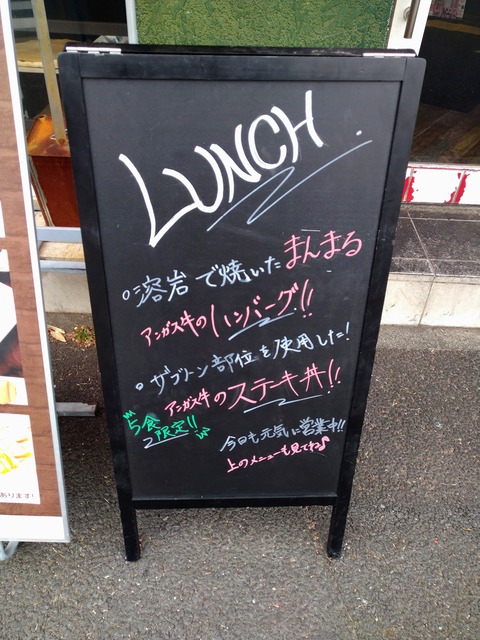 LUNCH.
○溶岩で焼いたまんまる
アンガス牛のハンバーグ!!
○ザブトン部位を使用した!
アンガス牛のステーキ丼!!
5食
限定!!
今日も元気に営業中!!
上のメニューも見てね♪
あります!